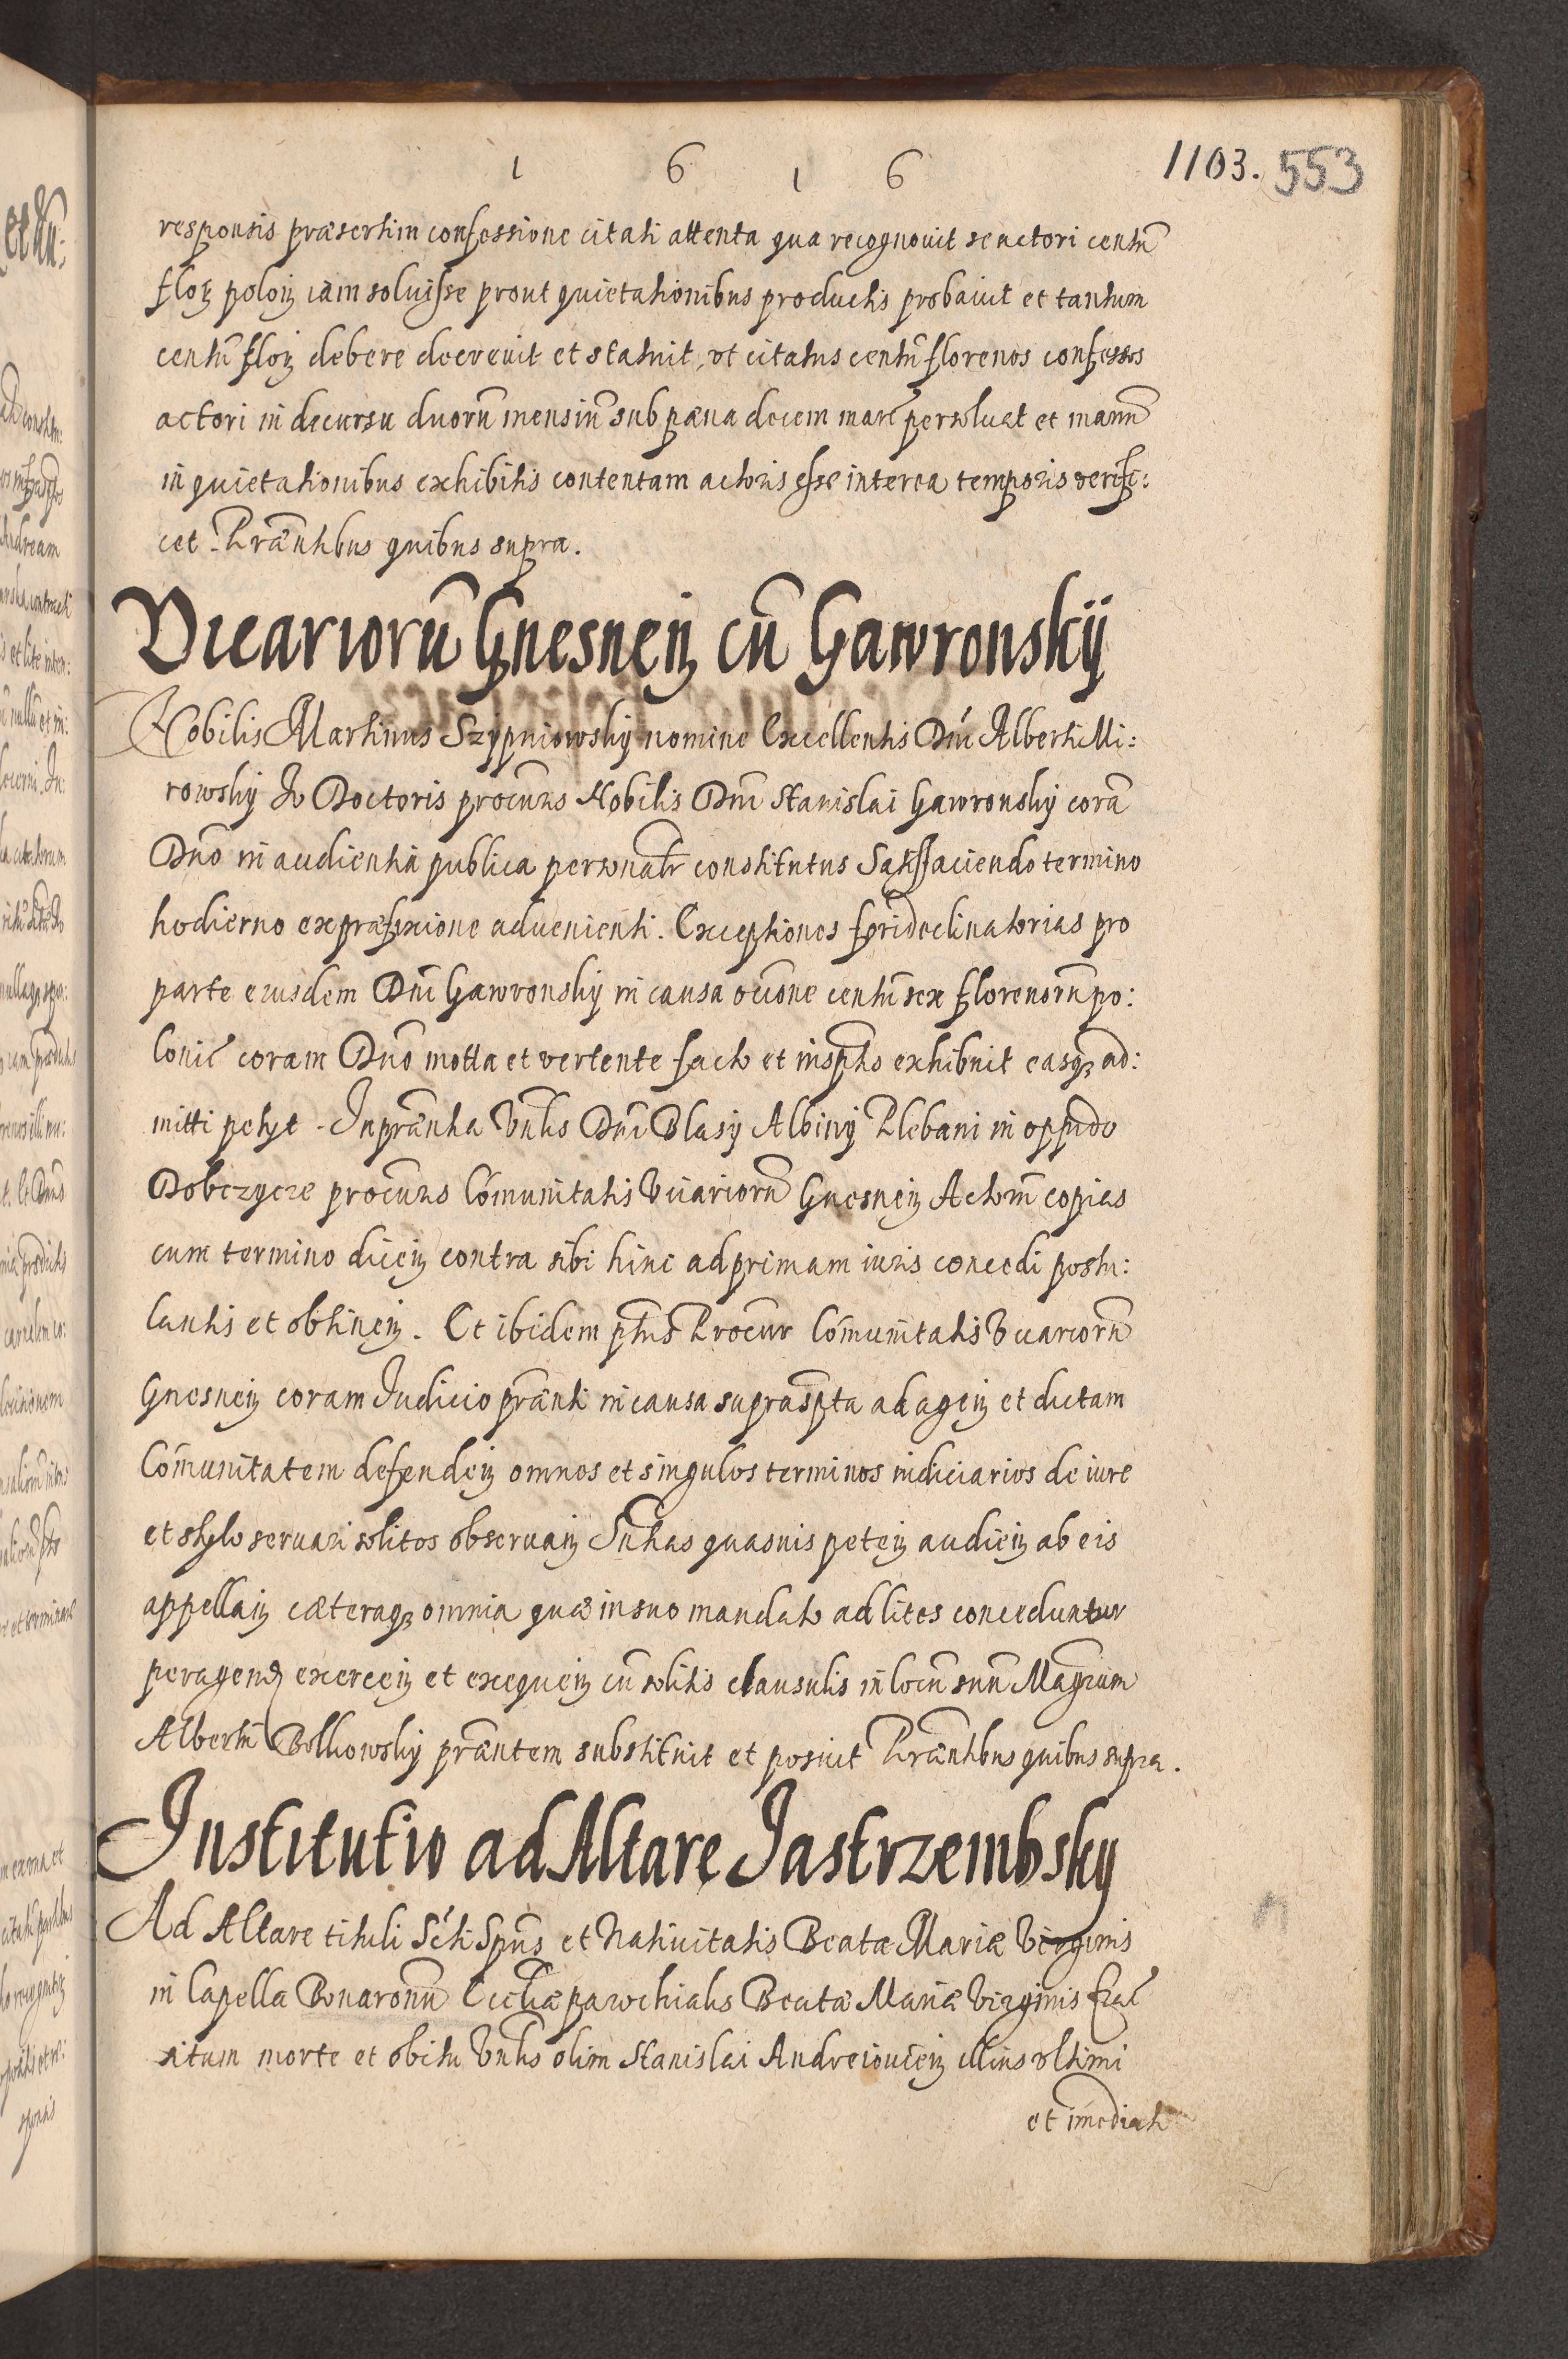 1 6 1 6
1103. 553
responsis præsertim confessione citati attenta qua recognovit se actori centũ
floꝶ poloꝶ iam soluisse prout quietationibus productis probavit et tantum
centũ floꝶ debere decrevit et statuit, ut citatus centũ florenos confessos
actori in decursu duorũ mensiũ sub pæna decem marč persoluat et manũ
in quietationibus exhibitis contentam actoris esse interea temporis verifi:
cet. Præntibus quibus supra.
Vicariorũ Gnesneñ cũ Gawronskÿ
Nobilis Martinus Szypniowsky nomine Excellentis Dñi Alberti Mi:
rowsky Iv Doctoris procuris Nobilis Dñi Stanislai Gawronsky corã
Dño in audientia publica personalr constitutus Satisfaciendo termino
hodierno ex præfixione advenienti. Exceptiones fori declinatorias pro
parte eiusdem Dñi Gawronsky in causa ocõne centũ sex florenorũ po:
lonic̃ coram Dño motta et vertente facto et inspto exhibuit easq; ad:
mitti petyt. In præntia Vntis Dñi Blasy Albiny Plebani in oppido
Dobczycze procuris Com̃unitatis Vicariorũ Gnesneñ Actorũ copias
cum termino diceñ contra sibi hinc ad primam iuris concedi postu:
lantis et obtineñ. Et ibidem ptus Procur Com̃unitatis Vicariorũ
Gnesneñ coram Iudicio prænti in causa suprascpta ad ageñ et dictam
Com̃unitatem defendeñ omnes et singulos terminos iudiciarios de iure
et stylo servari solitos observañ Sntias quasuis peteñ audieñ ab eis
appellañ cæteraq; omnia quæ in suo mandato ad lites conceduntur
peragend exerceñ et exequeñ cũ solitis clausulis in locũ suũ Magrum
Albertũ Bolkowsky præntem substituit et posuit Præntibus quibus supra.
Institutio ad Altare Jastrzembsky
Ad Altare tituli Scti Spũs et Nativitatis Beatæ Mariæ Virginis
in Capella Bonaronũ Ecctiæ parochialis Beatæ Mariæ Virginis Crac̃
situm morte et obitu Vntis olim Stanislai Andreioviceñ illius ultimi
et im̃ediati